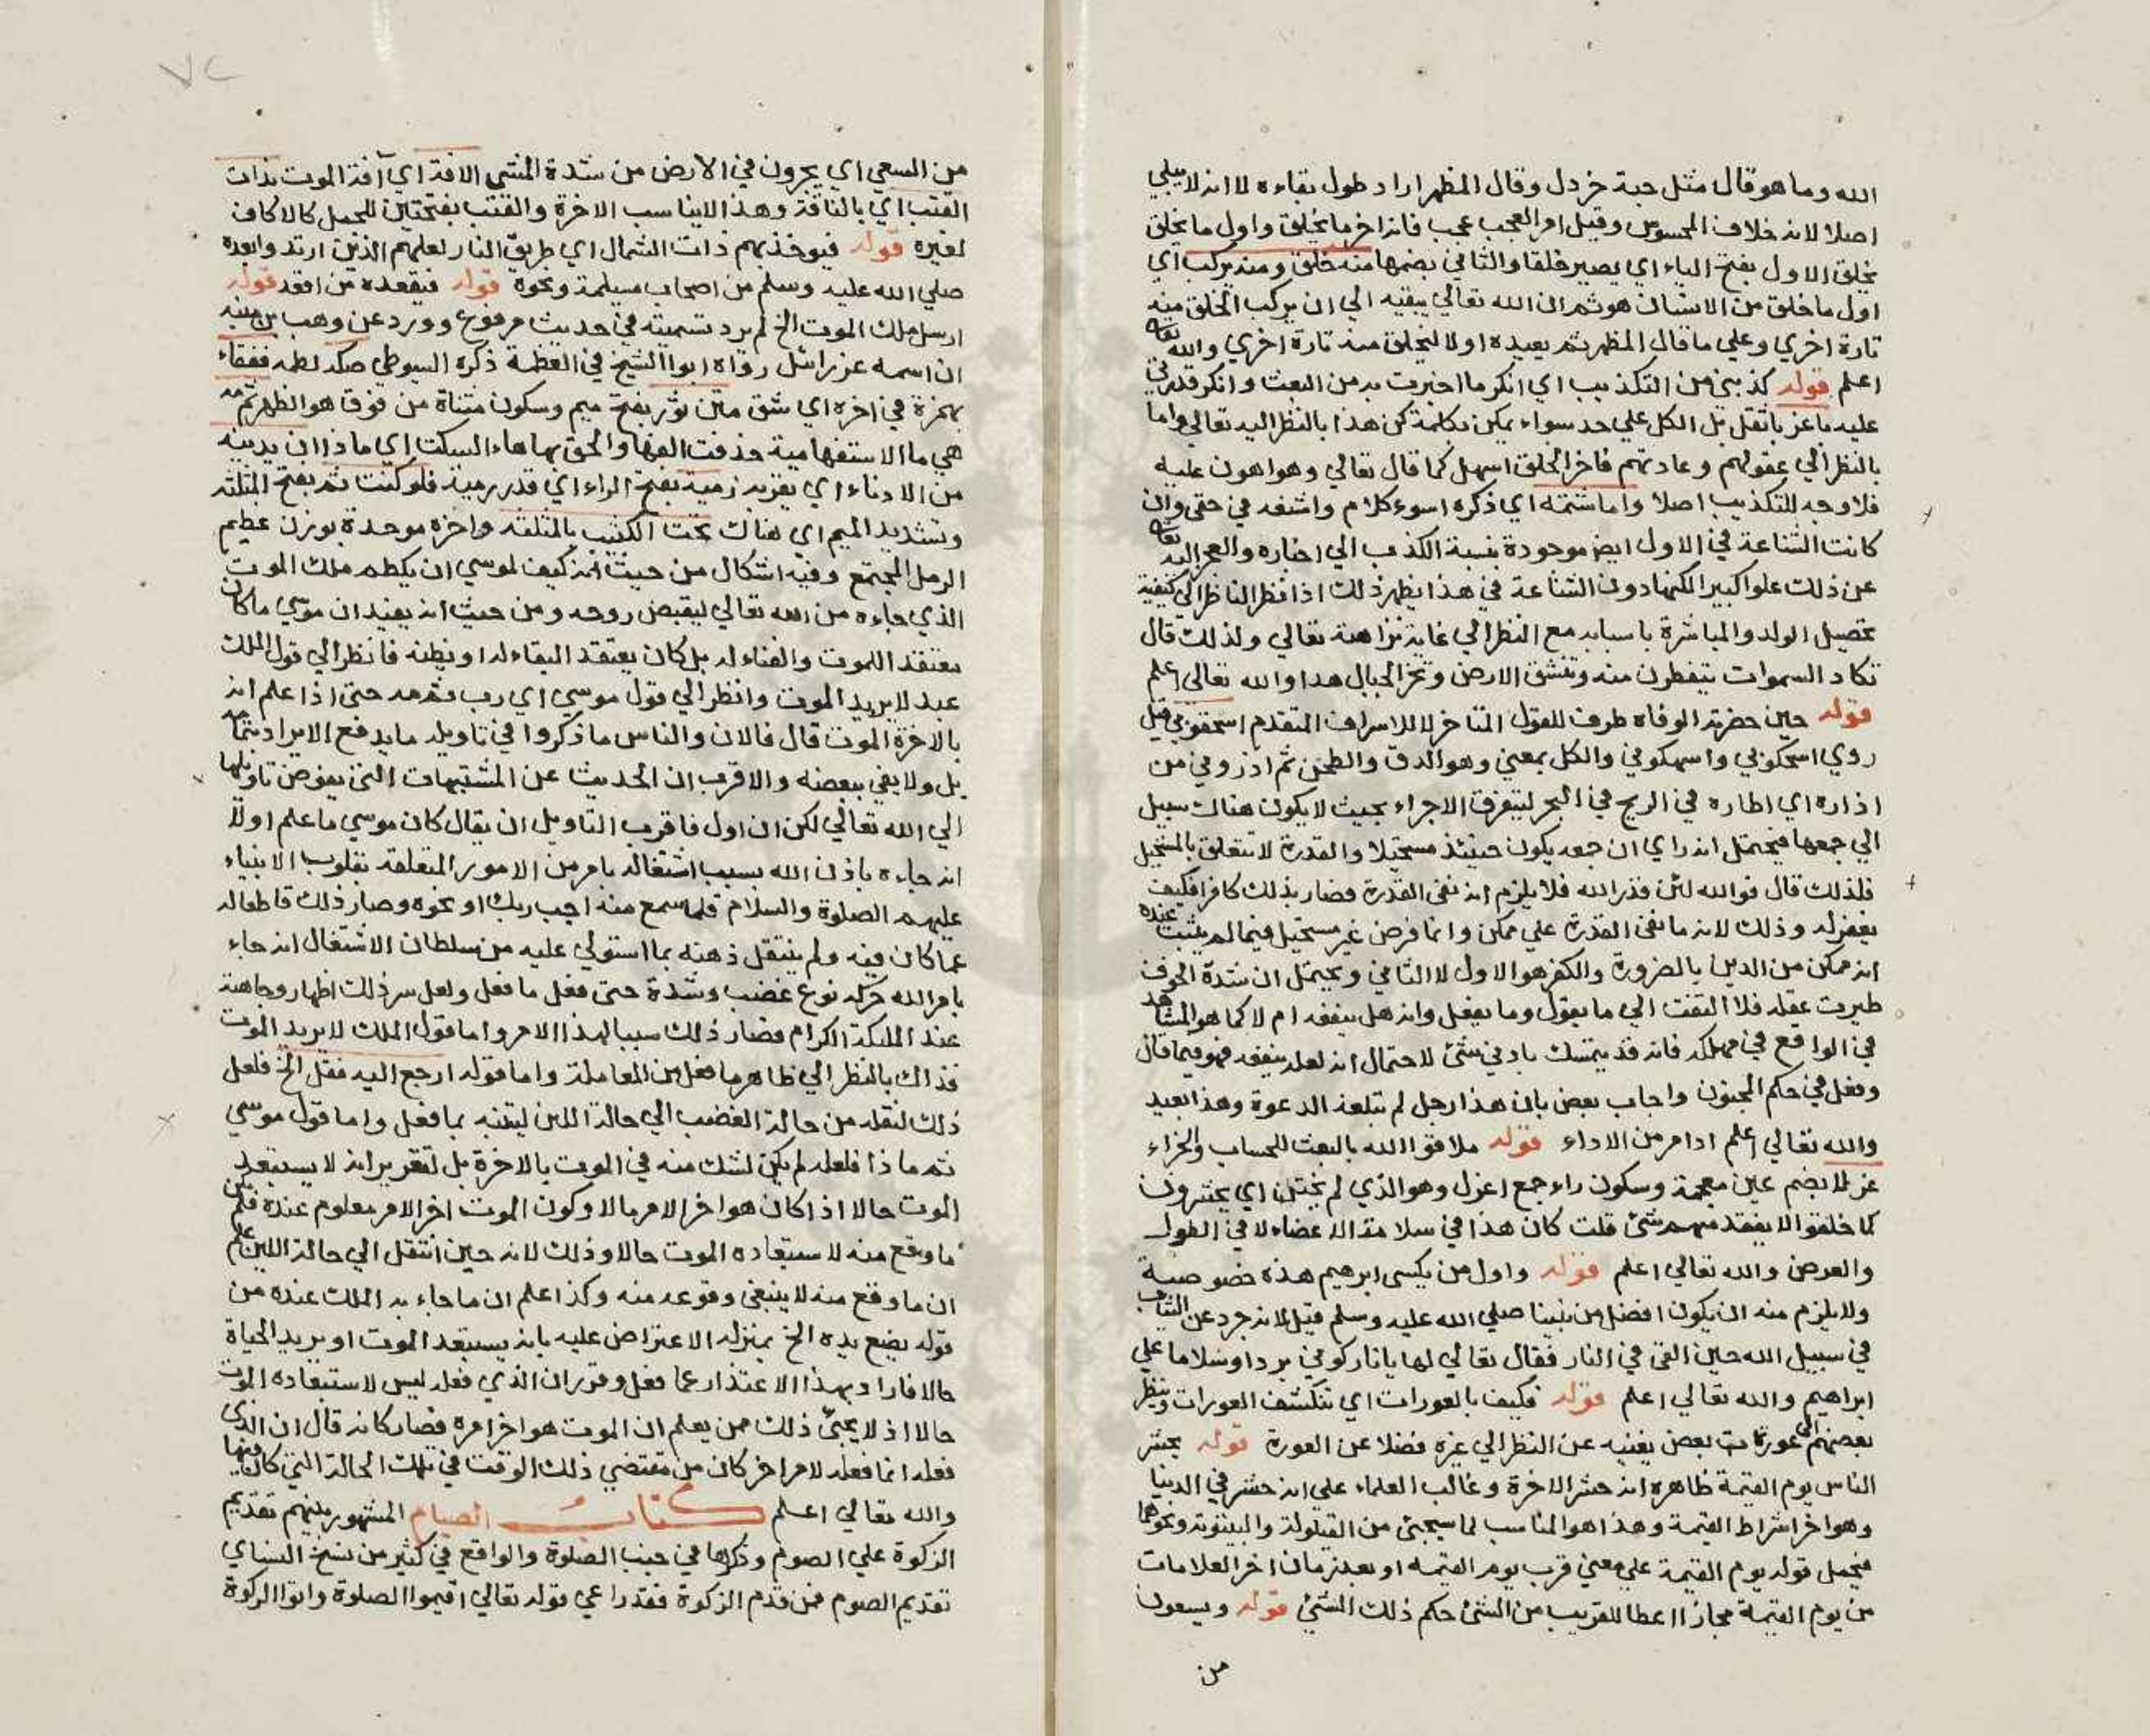 الله وما هو قال مثل حبة خردل وقال المظهر اراد طول بقاءه لا انه لا يبلي
اصلا لانه خلاف المحسوس وقيل امر العجب عجب فانه اخر ما يخلق واول ما يخلق
يخلق الاول بفتح الياء اي يصير خلقا والثاني بضمها منه خلق ومنه يركب اي
اول ما خلق من الانسان هو ثم ان الله تعالي يبقيه الي ان يركب الخلق منه
تارة اخري وعلي ما قال المظهر ثم يعيده اولا ليخلق منه تارة اخري والله تعالي
اعلم قوله كذبني من التكذيب اي انكر ما اخبرت به من البعث وانكر قدرتي
عليه باعز باثقل بل الكل علي حد سواء يمكن بكلمة كن هذا بالنظر اليه تعالي واما
بالنظر الي عقولهم وعادتهم فاخر الخلق اسهل كما قال تعالي وهو اهون عليه
فلا وجه للتكذيب اصلا واما شتمه اي ذكره اسوء كلام واشنعه في حقي وان
كانت الشناعة في الاول ايضا موجودة بنسبة الكذب الي اخباره والعجز اليه تعالي
عن ذلك علوا كبيرا لكنها دون الشناعة في هذا يظهر ذلك اذا نظر الناظر الي كيفية
تحصيل الولد والمباشرة باسبابه مع النظر الي غاية نزاهته تعالي ولذلك قال
تكاد السموات يتفطرن منه وتنشق الارض وتخر الجبال هدا والله تعالي اعلم
قوله حين حضرته الوفاة ظرف للقول المتاخر لا للاسراف المتقدم اسحقوني قيل
روي اسحكوني واسهكوني والكل بمعني وهو الدق والطحن ثم اذروني من
اذراه اي اطاره في الريح في البحر ليتفرق الاجزاء بحيث لا يكون هناك سبيل
الي جمعها فيحتمل انه راي ان جمعه يكون حينئذ مستحيلا والقدرة لا تتعلق بالمستحيل
فلذلك قال فوالله لئن قدر الله فلا يلزم انه نفي القدرة فصار بذلك كافرا فكيف
يغفر له وذلك لانه ما نفي القدرة علي ممكن وانما فرض غير مستحيل فيما لم يثبت عنده
انه ممكن من الدين بالضرورة والكفر هو الاول لا الثاني ويحتمل ان شدة الخوف
طيرت عقله فلا التفت الي ما يقول وما يفعل وانه هل ينفعه ام لا كما هو المشاهد
في الواقع في مهلكه فانه قد يتمسك بادني شئ لاحتمال انه لعله ينفعه فهو فيما قال
وفعل في حكم المجنون واجاب بعض بان هذا رجل لم تبلغه الدعوة وهذا بعيد
والله تعالي اعلم ادا امر من الاداء قوله ملاقوا الله بالبعث للحساب والجزاء
غرلا بضم غين معجمة وسكون راء جمع اغرل وهو الذي لم يختتن اي يحشرون
كما خلقوا لا يفقد منهم شئ قلت كان هذا في سلامة الاعضاء لا في الطول
والعرض والله تعالي اعلم قوله واول من يكسي ابرهيم هذه خصوصية
ولا يلزم منه ان يكون افضل من نبينا صلي الله عليه وسلم قيل لانه جرد عن الثياب
في سبيل الله حين القي في النار فقال تعالي لها يا نار كوني بردا وسلاما علي
ابراهيم والله تعالي اعلم قوله فكيف بالعورات اي تنكشف العورات وينظر
بعضهم الي عورة بعض يغنيه عن النظر الي غيره فضلا عن العورة قوله يحشر
الناس يوم القيمة ظاهره انه حشر الاخرة وغالب العلماء علي انه حشر في الدنيا
وهو اخر اشراط القيمة وهذا هو المناسب لما سيجئ من القيلولة والبيتوتة ونحوهما
فيحمل قوله يوم القيمة علي معني قرب يوم القيمة او يعد زمان اخر العلامات
من يوم القيمة مجازا اعطا للقريب من الشئ حكم ذلك الشئ قوله ويسعون
من
من السعي اي يجرون في الارض من شدة المشي الافة اي آفة الموت بذات
القتب اي بالناقة وهذا لا يناسب الاخرة والقتب بفتحتين للجمل كالاكاف
لغيره قوله فيوخذ بهم ذات الشمال اي طريق النار لعلهم الذين ارتدوا بعده
صلي الله عليه وسلم من اصحاب مسيلمة ونحوه قوله فيقعده من اقعد قوله
ارسل ملك الموت الخ لم يرد تسميته في حديث مرفوع وورد عن وهب بن منبه
ان اسمه عزرائيل رواه ابوا الشيخ في العظمة ذكره السيوطي صكه لطمه ففقاء
بهمزة في اخره اي شق متن ثور بفتح ميم وسكون مثناة من فوق هو الظهر ثم مه
هي ما الاستفهامية حذفت الفها والحق بها هاء السكت اي ماذا ان يدنيه
من الادناء اي يقربه رمية بفتح الراء اي قدر رمية فلو كنت ثم بفتح المثلثه
وتشديد الميم اي هناك تحت الكثيب بالمثلثه واخره موحدة بوزن عظيم
الرمل المجتمع وفيه اشكال من حيث انه كيف لموسي ان يلطم ملك الموت
الذي جاءه من الله تعالي ليقبض روحه ومن حيث انه يفيد ان موسي ما كان
معتقد الموت والفناء له بل كان يعتقد البقاء له او يظنه فانظر الي قول الملك
عبد لا يريد الموت وانظر الي قول موسي اي رب ثم مه حتي اذا علم انه
بالاخرة الموت قال فالان والناس ما ذكروا في تاويله ما يدفع الايراد بتمامه
بل ولا يفي ببعضه والاقرب ان الحديث عن المشتبهات التي يفوض تاويلها
الي الله تعالي لكن ان اول فاقرب التاويل ان يقال كان موسي ما علم اولا
انه جاءه باذن الله بسبب اشتغاله بامر من الامور المتعلقه بقلوب الانبياء
عليهم الصلوة والسلام فلما سمع منه اجب ربك او نحوه وصار ذلك قاطعا له
عما كان فيه ولم ينتقل ذهنه بما استولي عليه من سلطان الاشتغال انه جاء
بامر الله حركه نوع غضب وشدة حتي فعل ما فعل ولعل سر ذلك اظهار وجاهته
عند الملئكة الكرام فصار ذلك سببا لهذا الامر واما قول الملك لا يريد الموت
فذاك بالنظر الي ظاهر ما فعل من المعاملة واما قوله ارجع اليه فقل الخ فلعل
ذلك لنقله من حالة الغضب الي حالة اللين ليتنبه بما فعل واما قول موسي
ثم ماذا فلعله لم يكن لشك منه في الموت بالاخرة بل لتقرير انه لا يستبعد
الموت حالا اذا كان هو اخر الامر مالا وكون الموت اخر الامر معلوم عنده فلم يكن
ما وقع منه لاستبعاده الموت حالا وذلك لانه حين انتقل الي حالة اللين علم
ان ما وقع منه لا ينبغي وقوعه منه وكذا علم ان ما جاء به الملك عنده من
قوله يضع يده الخ بمنزلة الاعتراض عليه بانه يستبعد الموت او يريد الحياة
حالا فاراد بهذا الاعتذار عما فعل وقرر ان الذي فعله ليس لاستبعاده الموت
حالا اذ لا يجئ ذلك ممن يعلم ان الموت هو اخر امره فصار كانه قال ان الذي
فعله انما فعله لامر اخر كان من مقتضي ذلك الوقت في تلك الحالة التي كان فيها
والله تعالي اعلم كتاب الصيام المشهور بينهم تقديم
الزكوة علي الصوم وذكرها في جنب الصلوة والواقع في كثير من نسخ النساي
تقديم الصوم فمن قدم الزكوة فقد راعي قوله تعالي اقيموا الصلوة واتوا الزكوة